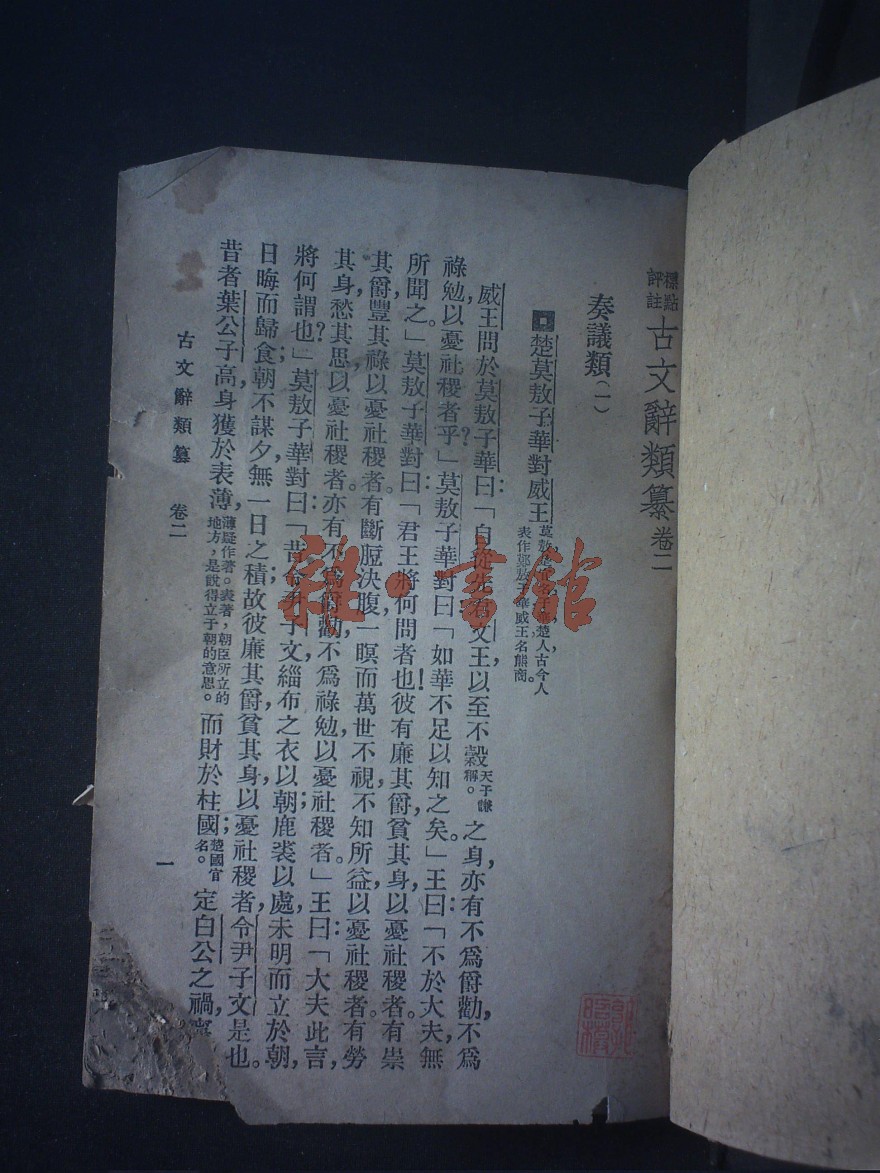 標點
評註
古文辭類纂卷二
奏議類(一)
楚莫敖子華對威王
楚人古今人
表作
華威王名熊商。
威王問於莫敖子華曰:「自從先君文王以至不穀天子謙稱。之身,亦有不爲爵勸,不爲
祿勉,以憂社稷者乎?」莫敖子華對曰:「如華不足以知之矣。」王曰:「不於大夫,無
所聞之。」莫敖子華對曰:「君王將何問者也!彼有廉其爵,貧其身,以憂社稷者。有崇
其爵,豐其祿,以憂社稷者。有斷脰決腹,一瞑而萬世不視,不知所益,以憂社稷者。有勞
其身,愁其思,以憂社稷者。亦有不爲爵勸,不爲祿勉,以憂社稷者。」王曰:「大夫此言,
將何謂也?」莫敖子華對曰:「昔令尹子文,緇布之衣以朝,鹿裘以處;未明而立於朝,
日晦而歸食;朝不謀夕,無一日之積;故彼廉其爵,貧其身,以憂社稷者,令尹子文是也。
昔者葉公子高,身獲於表薄,薄疑作著。表著,朝臣所立的地方,是說得立于朝的意思。而財於柱國;楚國官名。定白公之禍,
古文辭類纂 卷二
一
雜·書館